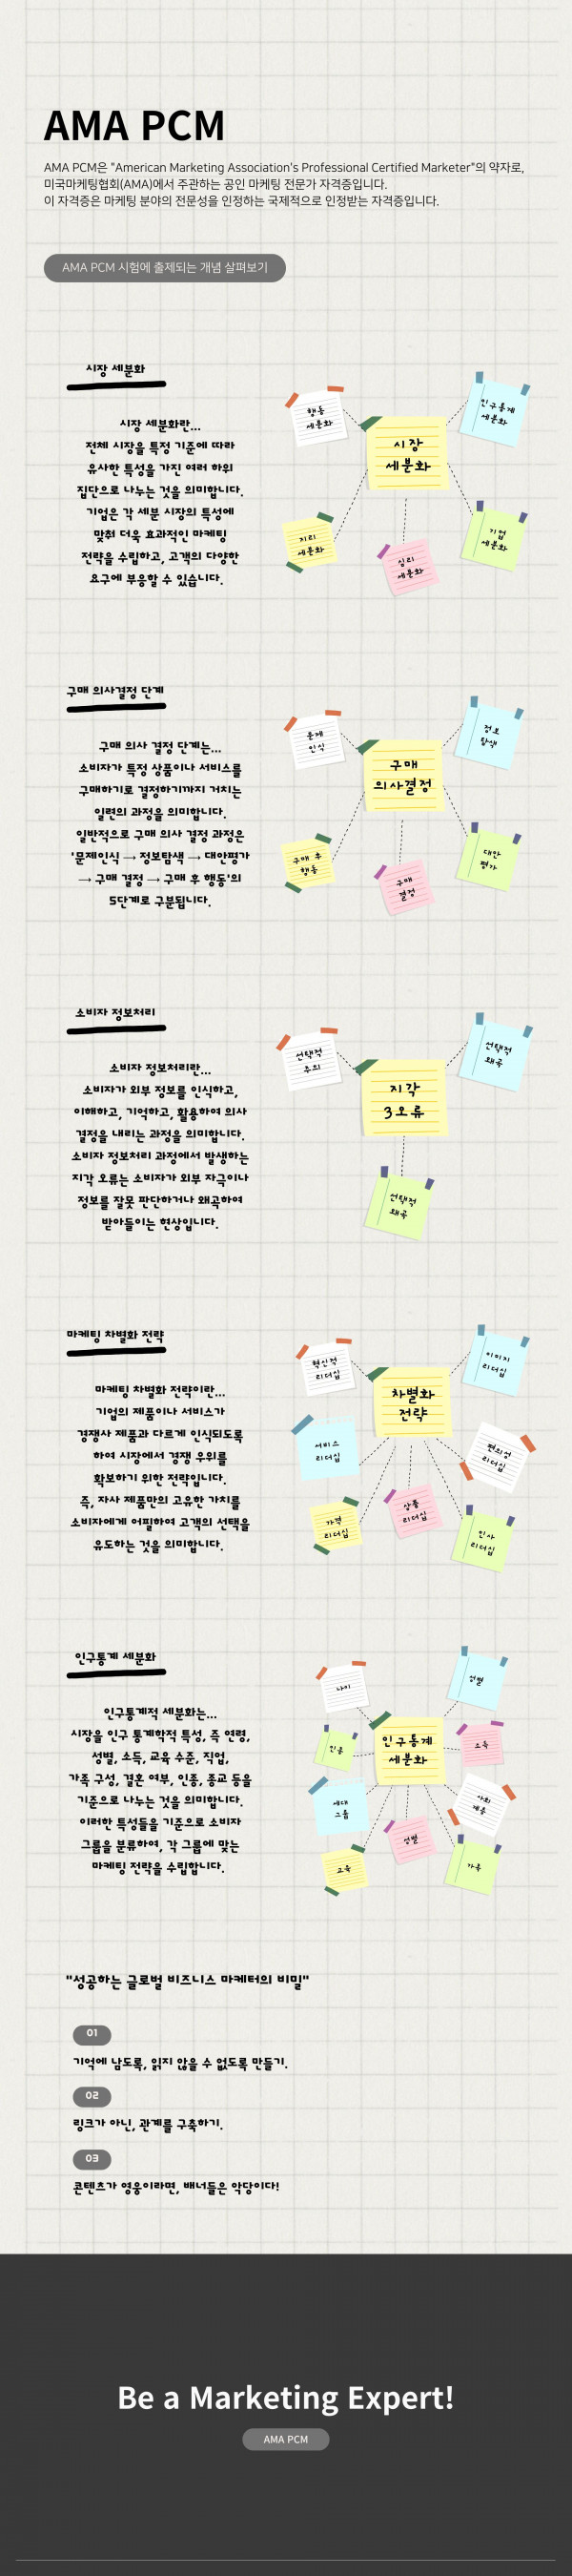 AMA PCM
AMA PCM은 "American Marketing Association's Professional Certified Marketer"의 약자로,
미국마케팅협회(AMA)에서 주관하는 공인 마케팅 전문가 자격증입니다.
이 자격증은 마케팅 분야의 전문성을 인정하는 국제적으로 인정받는 자격증입니다.
AMA PCM 시험에 출제되는 개념 살펴보기
시장 세분화
시장 세분화란...
전체 시장을 특정 기준에 따라
유사한 특성을 가진 여러 하위
집단으로 나누는 것을 의미합니다.
기업은 각 세분 시장의 특성에
맞춰 더욱 효과적인 마케팅
전략을 수립하고, 고객의 다양한
요구에 부응할 수 있습니다.
행동
세분화
인구통계
세분화
시장
세분화
지리
세분화
심리
세분화
기업
세분화
구매 의사결정 단계
구매 의사 결정 단계는...
소비자가 특정 상품이나 서비스를
구매하기로 결정하기까지 거치는
일련의 과정을 의미합니다.
일반적으로 구매 의사 결정 과정은
'문제인식 → 정보탐색 → 대안평가
→ 구매 결정 → 구매 후 행동'의
5단계로 구분됩니다.
문제
인식
정보
탐색
구매
의사결정
구매 후
행동
구매
결정
대안
평가
소비자 정보처리
소비자 정보처리란...
소비자가 외부 정보를 인식하고,
이해하고, 기억하고, 활용하여 의사
결정을 내리는 과정을 의미합니다.
소비자 정보처리 과정에서 발생하는
지각 오류는 소비자가 외부 자극이나
정보를 잘못 판단하거나 왜곡하여
받아들이는 현상입니다.
선택적
주의
선택적
왜곡
지각
3오류
선택적
왜곡
마케팅 차별화 전략
마케팅 차별화 전략이란...
기업의 제품이나 서비스가
경쟁사 제품과 다르게 인식되도록
하여 시장에서 경쟁 우위를
확보하기 위한 전략입니다.
즉, 자사 제품만의 고유한 가치를
소비자에게 어필하여 고객의 선택을
유도하는 것을 의미합니다.
혁신적
리더십
이미지
리더십
차별화
전략
서비스
리더십
편의성
리더십
가격
리더십
상품
리더십
인사
리더십
인구통계 세분화
인구통계적 세분화는...
시장을 인구 통계학적 특성, 즉 연령,
성별, 소득, 교육 수준, 직업,
가족 구성, 결혼 여부, 인종, 종교 등을
기준으로 나누는 것을 의미합니다.
이러한 특성들을 기준으로 소비자
그룹을 분류하여, 각 그룹에 맞는
마케팅 전략을 수립합니다.
나이
성별
인구통계
세분화
인종
소득
세대
그룹
사회
계층
성별
교육
가족
"성공하는 글로벌 비즈니스 마케터의 비밀"
01
기억에 남도록, 읽지 않을 수 없도록 만들기.
02
링크가 아닌, 관계를 구축하기.
03
콘텐츠가 영웅이라면, 배너들은 악당이다!
Be a Marketing Expert!
AMA PCM